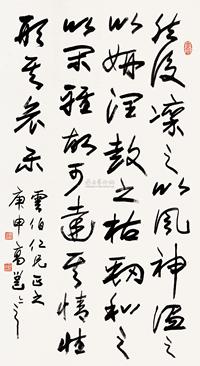 然後凜之以風神溫之
以妍潤鼓之枯勁和之
以閑雅故可達其情性
形其哀樂
雲伯仁兄正之
庚申 葛